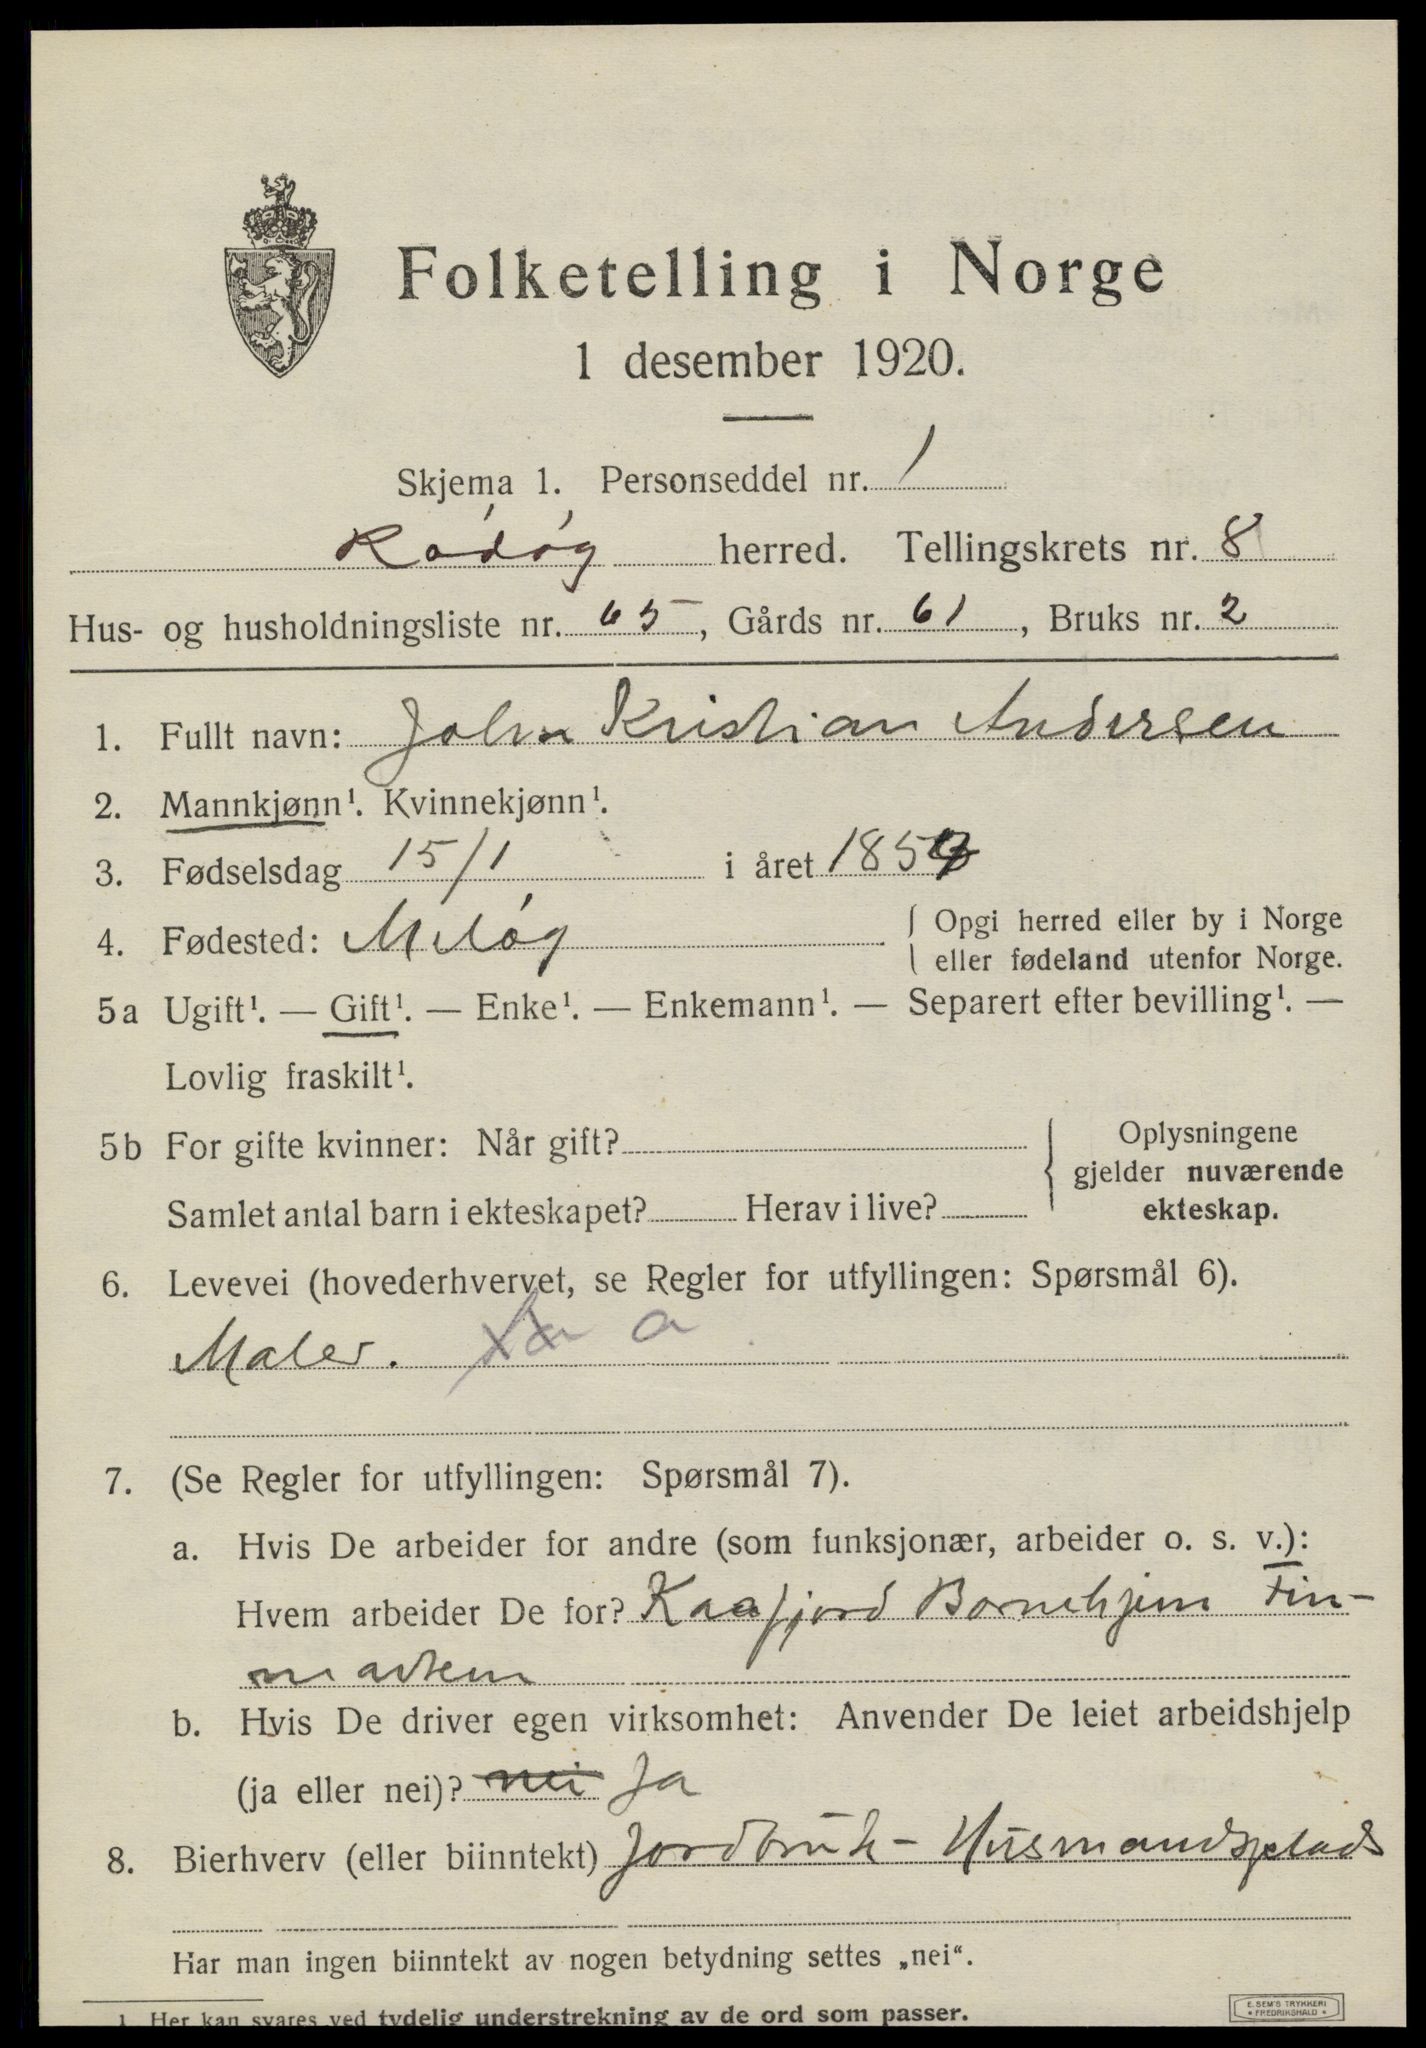 Folketelling i Norge
1 desember 1920.
Skjema 1. Personseddel nr. 1
Ródóy herred. Tellingskrets nr. 8
Hus- og husholdningsliste nr. 65, Gårds nr. 61, Bruks nr. 2
1. Fullt navn: John Kristian Andersen
2. Mannkjønn¹. Kvinnekjønn¹.
3. Fødselsdag 15/1 i året 1859
4. Fødested: Meløy { Opgi herred eller by i Norge
eller fødeland utenfor Norge.
5a Ugift¹. — Gift¹. — Enke¹. — Enkemann¹. — Separert efter bevilling¹. —
Lovlig fraskilt¹.
5b For gifte kvinner: Når gift? { Oplysningene
gjelder nuværende
Samlet antal barn i ekteskapet? Herav i live? ekteskap.
6. Levevei (hovederhvervet, se Regler for utfyllingen: Spørsmål 6).
Maler. a
7. (Se Regler for utfyllingen: Spørsmål 7).
a. Hvis De arbeider for andre (som funksjonær, arbeider o. s. v.):
Hvem arbeider De for? Kaafjord Barnehjem Fin-
marken
b. Hvis De driver egen virksomhet: Anvender De leiet arbeidshjelp
(ja eller nei)? nei Ja
8. Bierhverv (eller biinntekt) Jordbruk - Husmandsplads
Har man ingen biinntekt av nogen betydning settes „nei“.
1 Her kan svares ved tydelig understrekning av de ord som passer.
E. SEM'S TRYKKERI
• FREDRIKSHALD •